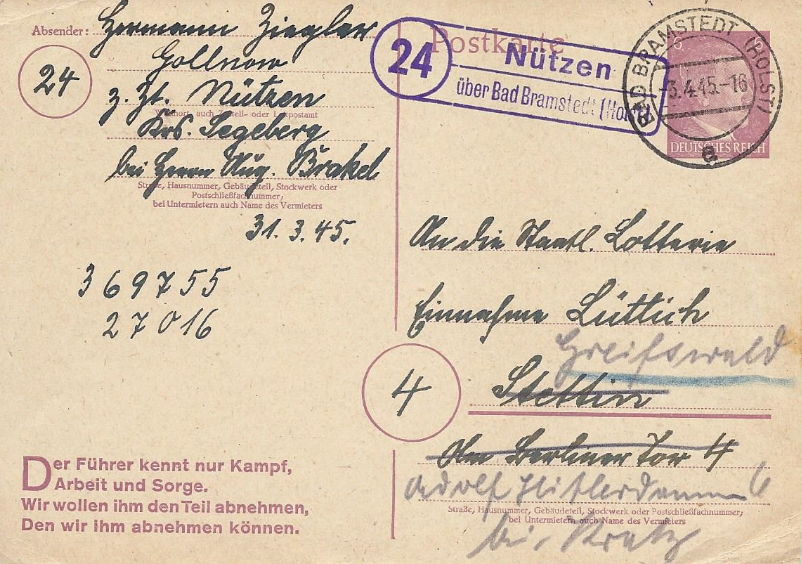 Absender: Hermann Ziegler
Gollnow
24
z. Zt. Nützen
Wohnort, auch Zustell- oder Leitpostamt
Krs. Segeberg
bei Herrn Aug. Brakel
Straße, Hausnummer, Gebäudeteil, Stockwerk oder
Postschließfachnummer,
bei Untermietern auch Name des Vermieters
31. 3. 45.
369755
27016
Der Führer kennt nur Kampf,
Arbeit und Sorge.
Wir wollen ihm den Teil abnehmen,
Den wir ihm abnehmen können.
Postkarte
24
Nützen
über Bad Bramstedt (Holst)
BAD BRAMSTEDT (HOLST)
-3.4.45.-16
a
6
DEUTSCHES REICH
An die Staatl. Lotterie
Einnahme Lüttich
Greifswald
4
Stettin
Am Berliner Tor 4
Adolf Hitlerdamm 6
Straße, Hausnummer, Gebäudeteil, Stockwerk oder Postschließfachnummer,
bei Untermietern auch Name des Vermieters
bei Kratz